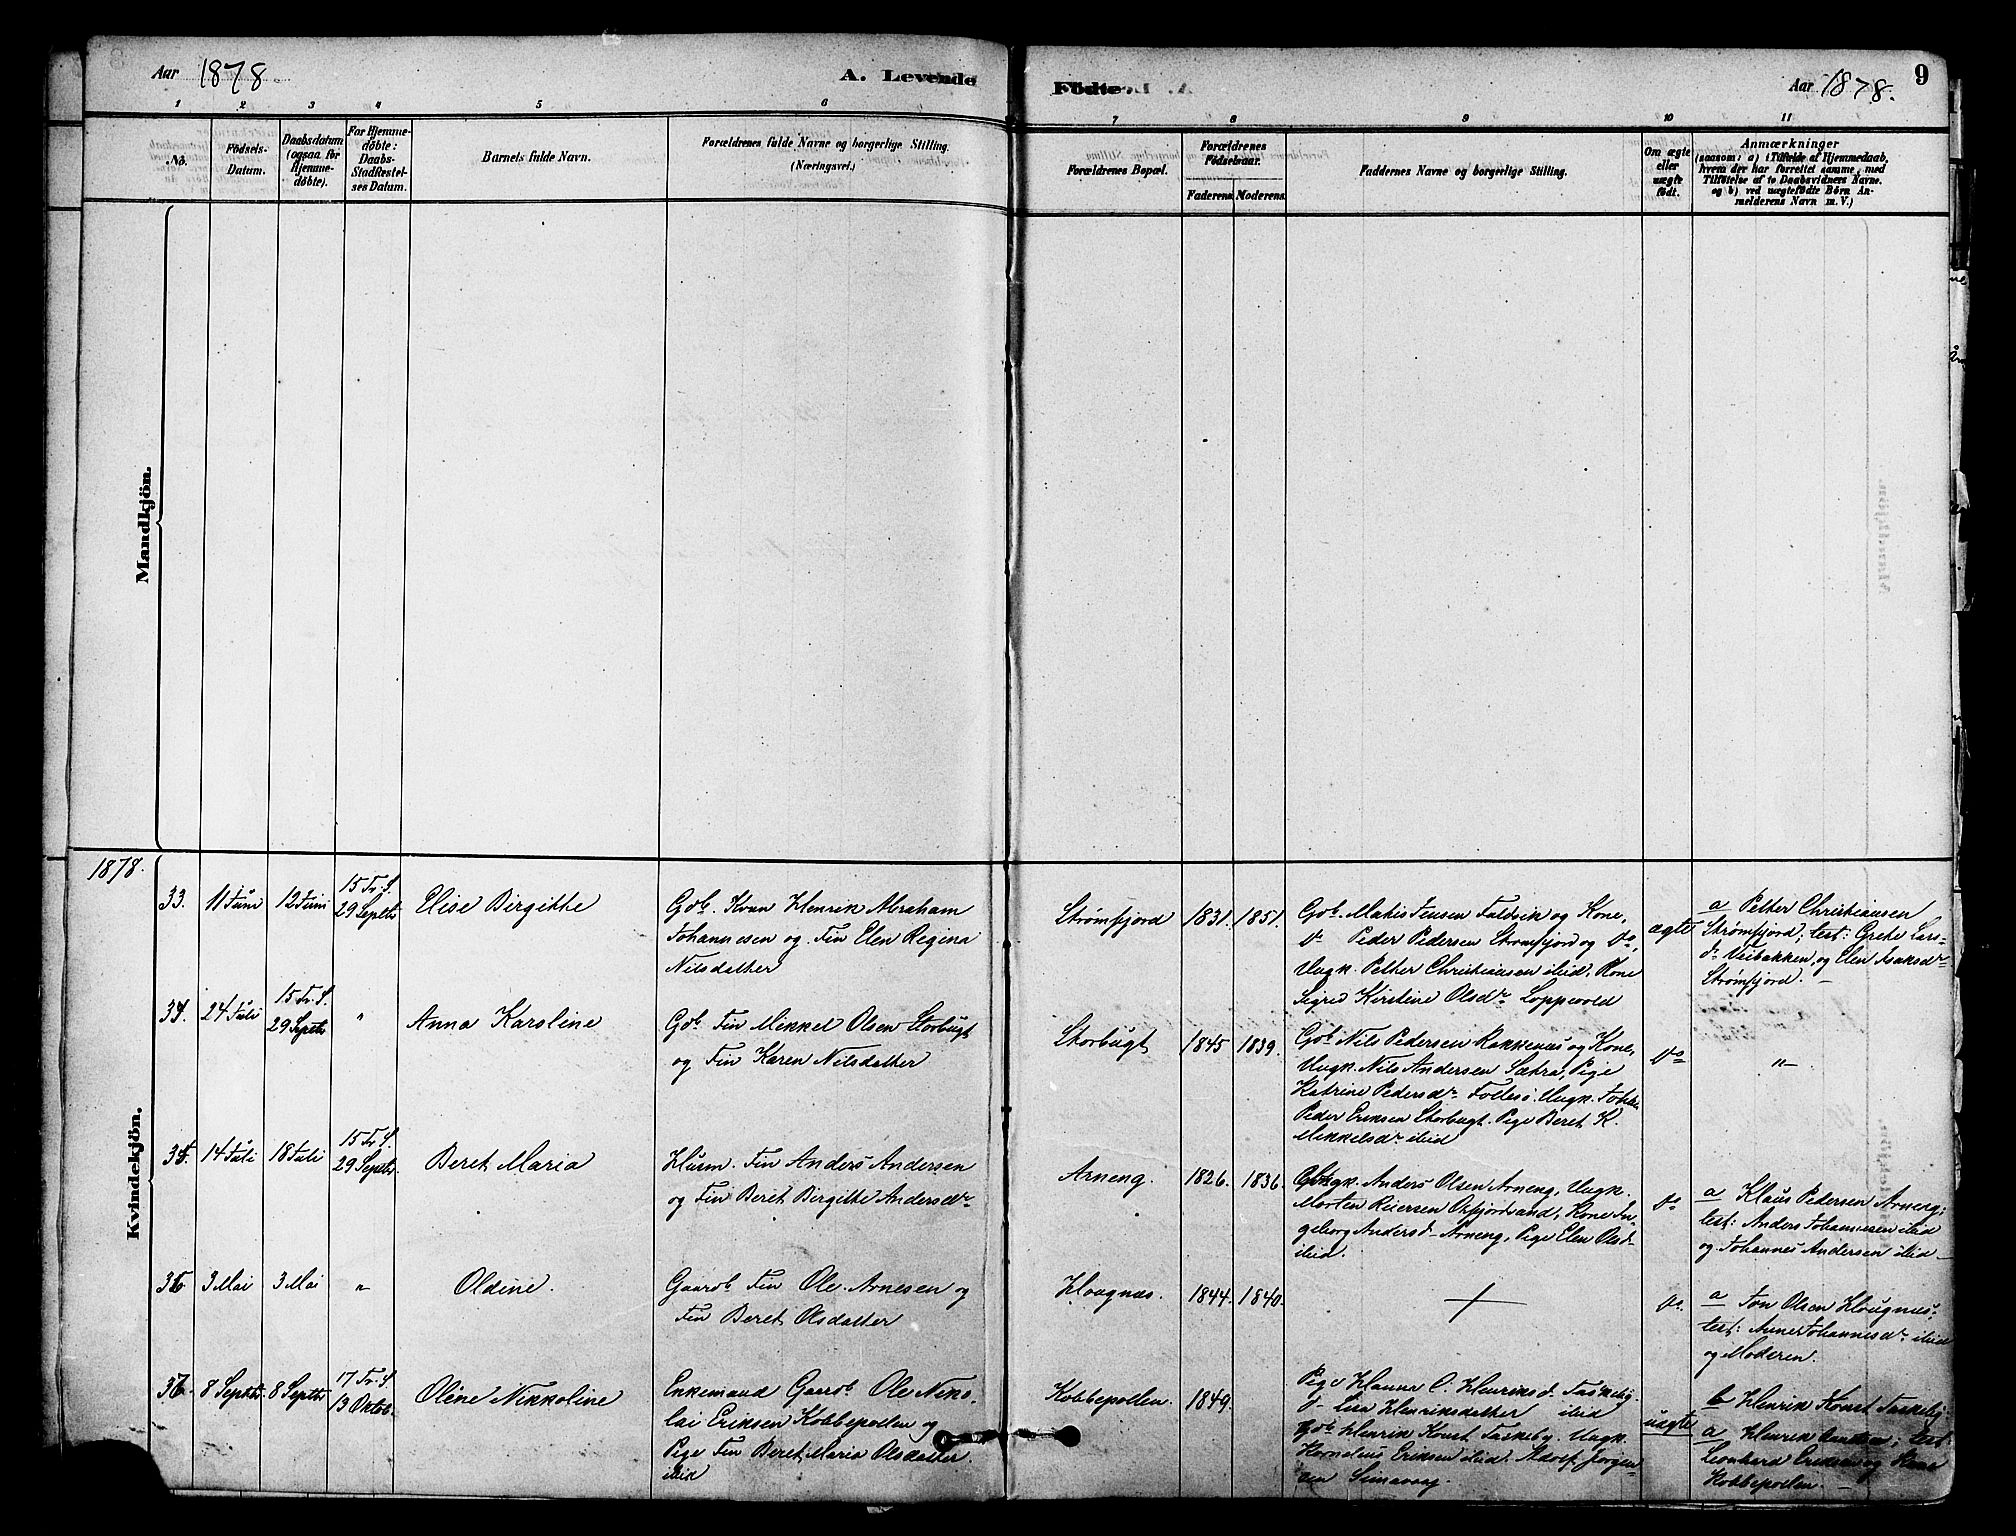 Aar 1878
A. Levende
Födte.
Aar 1878.
9
1 2 3 4 5 6
7 8 9 10 11
No.
Födsels-
Datum.
Daabsdatum
(ogsaa for
Hjemme-
døbte).
For Hjemme-
døbte:
Daabs-
Stadfestel-
ses Datum.
Barnets fulde Navn.
Forældrenes fulde Navne og borgerlige Stilling.
(Næringsvei.)
Forældrenes Bopæl.
Forældrenes
Födselsaar.
Faderens. Moderens.
Faddernes Navne og borgerlige Stilling.
Om ægte
eller
uægte
født.
Anmærkninger
(saasom: a) i Tilfælde af Hjemmedaab,
hvem der har forrettet samme, med
Tilføielse af to Daabsvidners Navne,
og b) ved uægtefödte Börn An-
melderens Navn m. V.)
Mandkjön.
Kvindekjön.
1878.
33.
11 Juni
12 Juni
15 Tr. S.
29 Septb.
Elise Birgitte
Gb. Kvæn Henrik Abraham
Johannesen og Fin Elen Regina
Nilsdatter
Strømfjord
1831.
1851.
Gb. Mathis Jensen Faldvik og Kone,
do Peder Pedersen Strømfjord og do,
Ungk. Petter Christiansen ibid, Kone
Sigrid Kirstine Olsdr Loppevold
ægte
a Petter Christiansen
Strømfjord; test: Grethe Lars-
dr Veibakken, og Elen Isaksdr
Strømfjord.
34.
24 Juli
15 Tr. S.
29 Septb.
"
Anna Karoline
Gb. Fin Mikkel Olsen Storbugt
og Fin Karen Nilsdatter
Storbugt
1845
1839.
Gb. Nils Pedersen Rakkenæs og Kone,
Ungk. Nils Andersen Sætra, Pige
Katrine Pedersdr Follesö. Ungk. Johan
Peder Eriksen Storbugt. Pige Beret K.
Mikkelsdr ibid
do
"
35.
14 Juli
18 Juli
15 Tr. S.
29 Septb.
Beret Maria
Husm. Fin Anders Andersen
og Fin Beret Birgitte Andersdr
Arneng.
1826.
1836.
Ungk. Anders Olsen Arneng, Ungk.
Morten Reiersen Oxfjordsand, Kone In-
geborg Andersd Arneng, Pige Elen Olsd
ibid.
do
a Klaus Pedersen Arneng;
test: Anders Johannesen ibid
og Johannes Andersen ibid
36.
3 Mai
3 Mai
"
Oldine.
Gaardb. Fin Ole Arnesen og
Fin Beret Olsdatter
Hougnæs.
1844.
1840.
do.
a Jon Olsen Hougnæs;
test: Anne Johannesdr ibid
og Moderen.
37.
8 Septbr.
8 Septbr.
17 Tr. S.
13 Oktob.
Oline Nikkoline
Enkemand Gaardb. Ole Niko-
lai Eriksen Kobbepollen og
Pige Fin Beret Maria Olsdatter
ibid
Kobbepollen.
1849.
Pige Hanna C. Henriksd. Taskeby.
do Lisa Henriksdatter ibid
Gb. Henrik Konst Taskeby. Ungk.
Kornelius Eriksen ibid. Adolf Jörgen-
sen Simavaag
uægte
b Henrik Konst Taskeby.
a Henrik test:
Leonhard Eriksen og Kone
Kobbepollen.